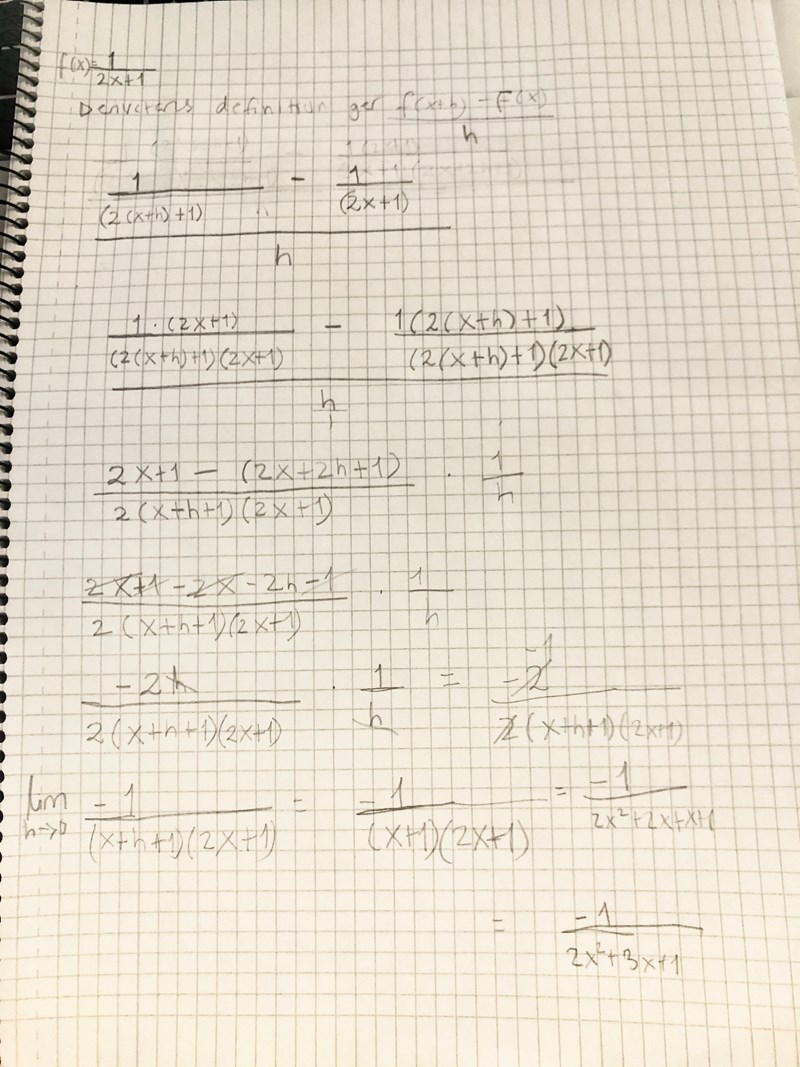 f(x)=1/(2x+1)
Derivatans definition ger (f(x+h) - F(x))/h
(1/(2(x+h)+1) - 1/(2x+1))/h
((1·(2x+1))/((2(x+h)+1)(2x+1)) - (1(2(x+h)+1))/((2(x+h)+1)(2x+1)))/h
(2x+1 - (2x+2h+1))/(2(x+h+1)(2x+1)) · 1/h
(2x+1-2x-2h-1)/(2(x+h+1)(2x+1)) · 1/h
-2h/(2(x+h+1)(2x+1)) · 1/h = -2/(2(x+h+1)(2x+1)) -1
lim h→0 -1/((x+h+1)(2x+1)) = -1/((x+1)(2x+1)) = -1/(2x²+2x+x+1)
= -1/(2x²+3x+1)